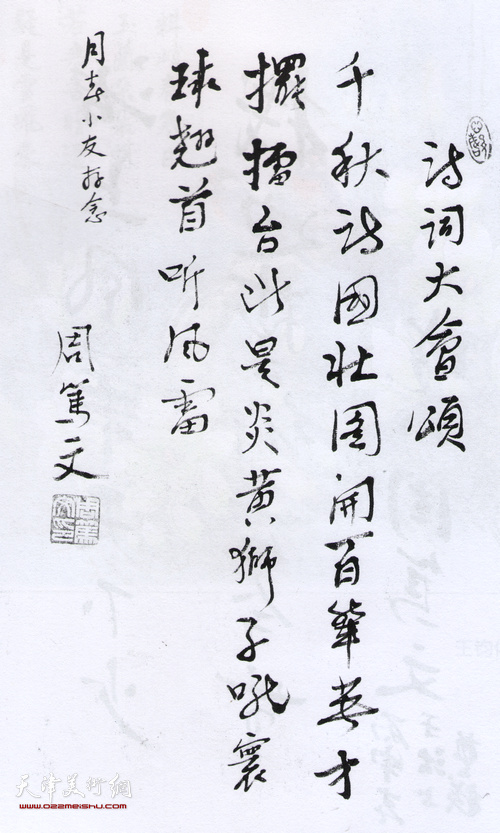 诗词大會頌
千秋诗國壮图開百輩英才
擺擂台此是炎黄獅子吼寰
球翘首听风雷
月春小友存念
周篤文
天津美术网
www.022meishu.com